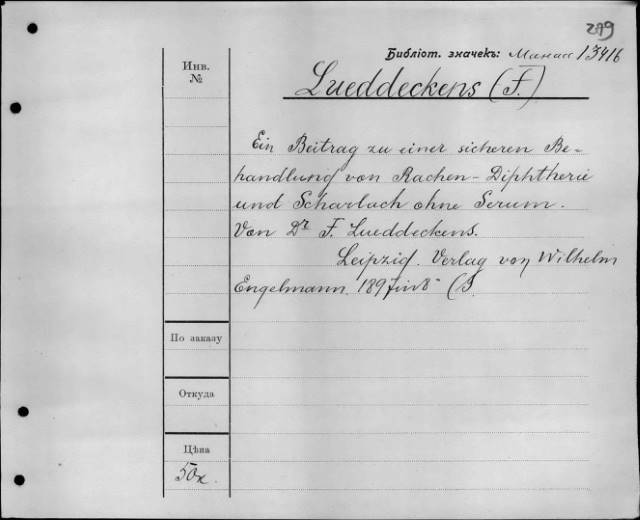 299
Библіот. значекъ: Манас 13416
Инв. №
Lueddeckens (F.)
Ein Beitrag zu einer sicheren Be-
handlung von Rachen-Diphtherie
und Scharlach ohne Serum.
Von Dr F. Lueddeckens.
Leipzig. Verlag von Wilhelm
Engelmann. 1897 in 8° (B
По заказу
Откуда
Цѣна
50к.